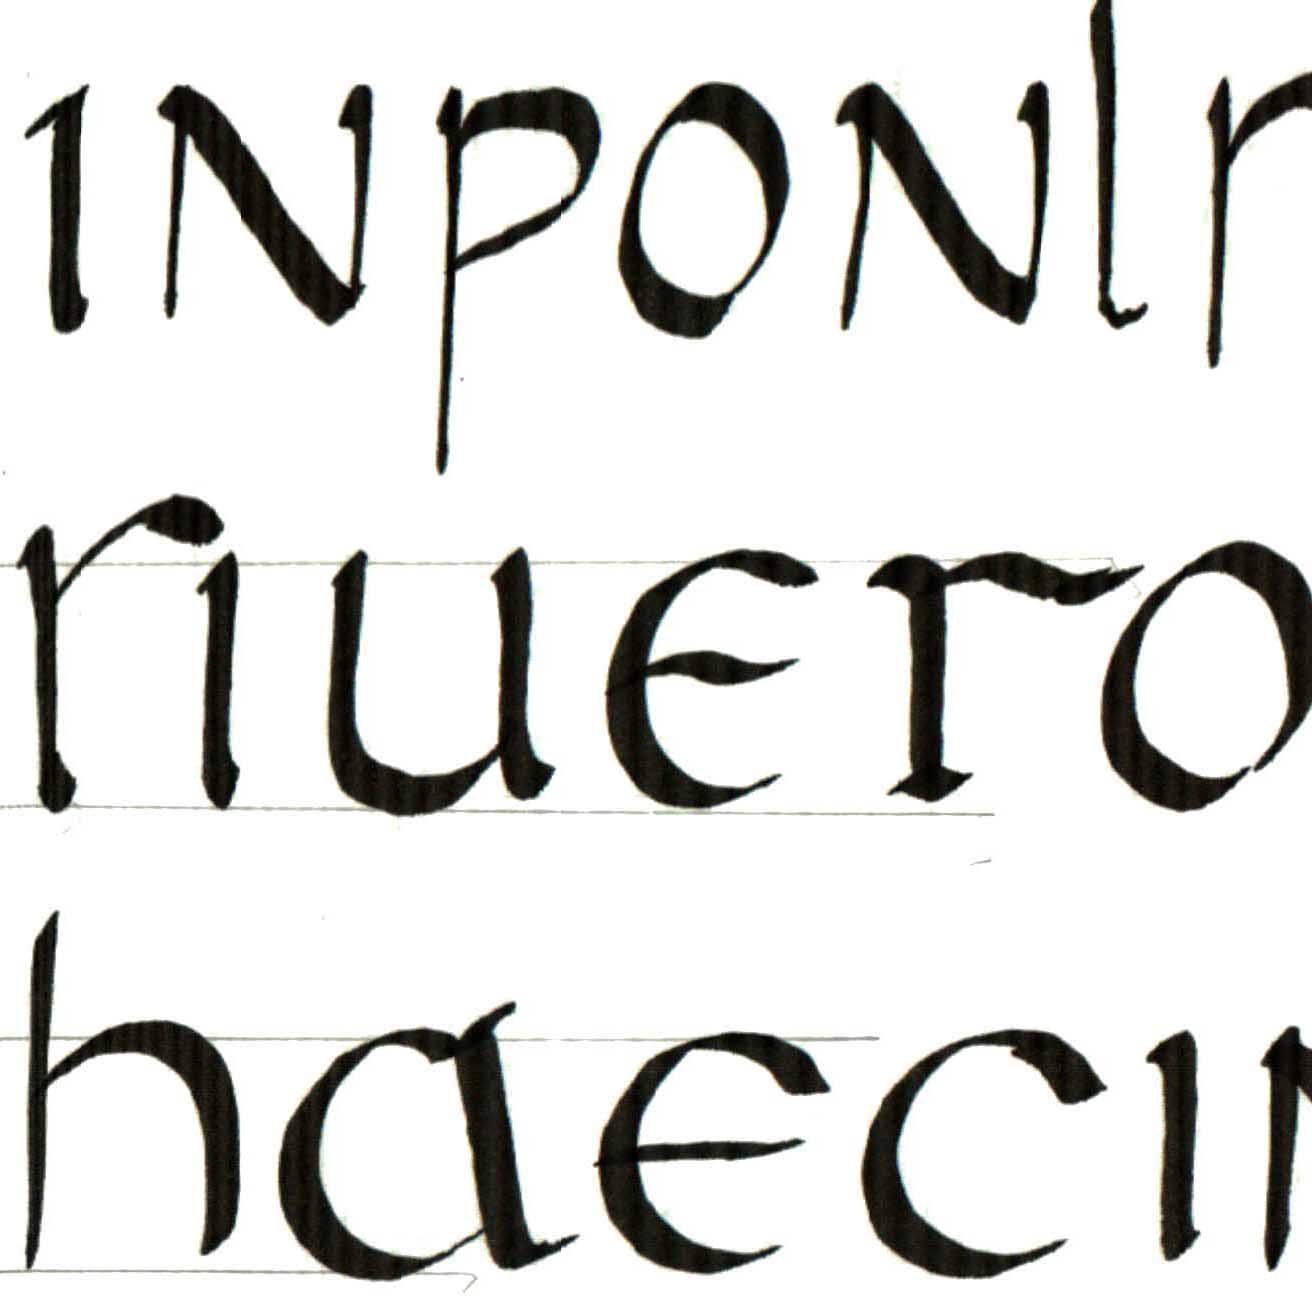 INPONlr
riuero
haecin